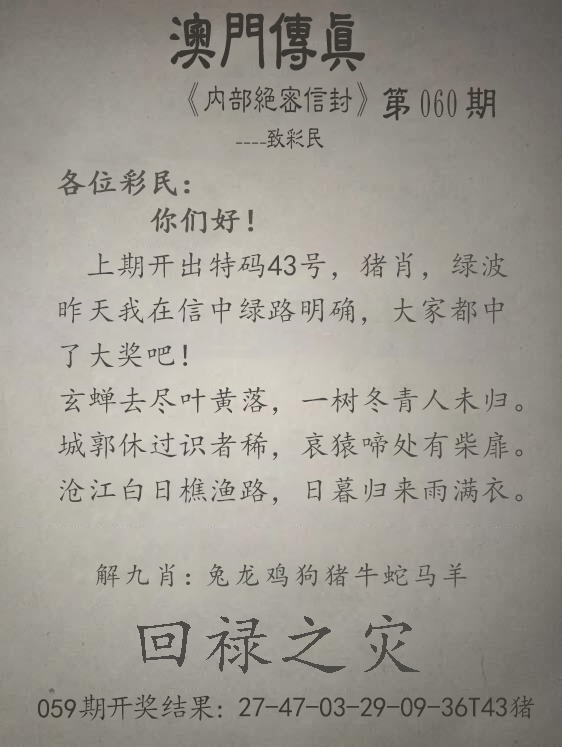 澳門傳眞
《内部絕密信封》第060期
----致彩民
各位彩民：
你们好！
上期开出特码43号，猪肖，绿波
昨天我在信中绿路明确，大家都中
了大奖吧！
玄蝉去尽叶黄落，一树冬青人未归。
城郭休过识者稀，哀猿啼处有柴扉。
沧江白日樵渔路，日暮归来雨满衣。
解九肖：兔龙鸡狗猪牛蛇马羊
回禄之灾
059期开奖结果：27-47-03-29-09-36T43猪